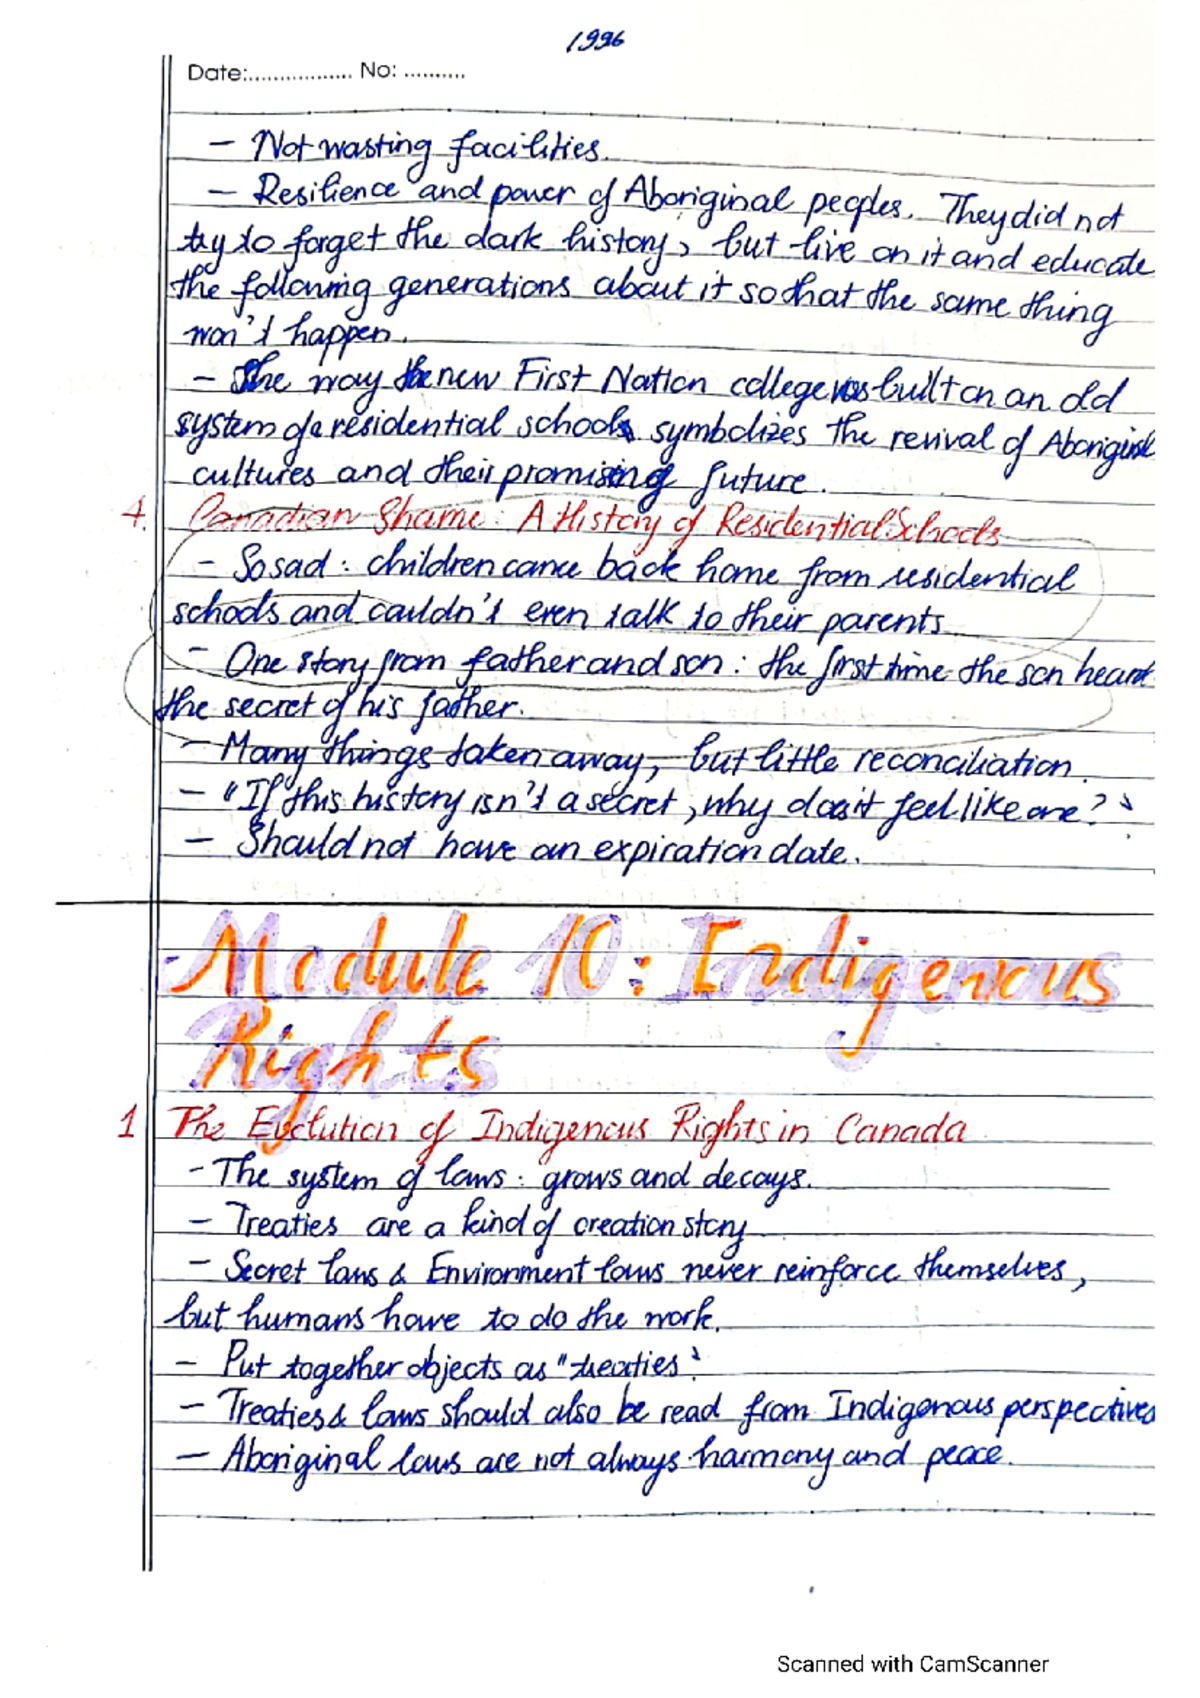 1996
Date:................. No: ..........
- Not wasting facilities.
- Resilience and power of Aboriginal peoples. They did not
try to forget the dark history, but live on it and educate
the following generations about it so that the same thing
won't happen.
- The way the new First Nation college was built on an old
system of a residential schools symbolizes the revival of Aboriginal
cultures and their promising future.
4. Canadian Shame: A History of Residential Schools
- So sad: children came back home from residential
schools and couldn't even talk to their parents
- One story from father and son: the first time the son heard
the secret of his father.
- Many things taken away, but little reconciliation.
- "If this history isn't a secret, why does it feel like one?"
- Should not have an expiration date.
- Module 10: Indigenous
Rights
1 The Evolution of Indigenous Rights in Canada
- The system of laws: grows and decays.
- Treaties are a kind of creation story
- Secret laws & Environment laws never reinforce themselves,
but humans have to do the work.
- Put together objects as "treaties".
- Treaties & laws should also be read from Indigenous perspectives
- Aboriginal laws are not always harmony and peace.
Scanned with CamScanner